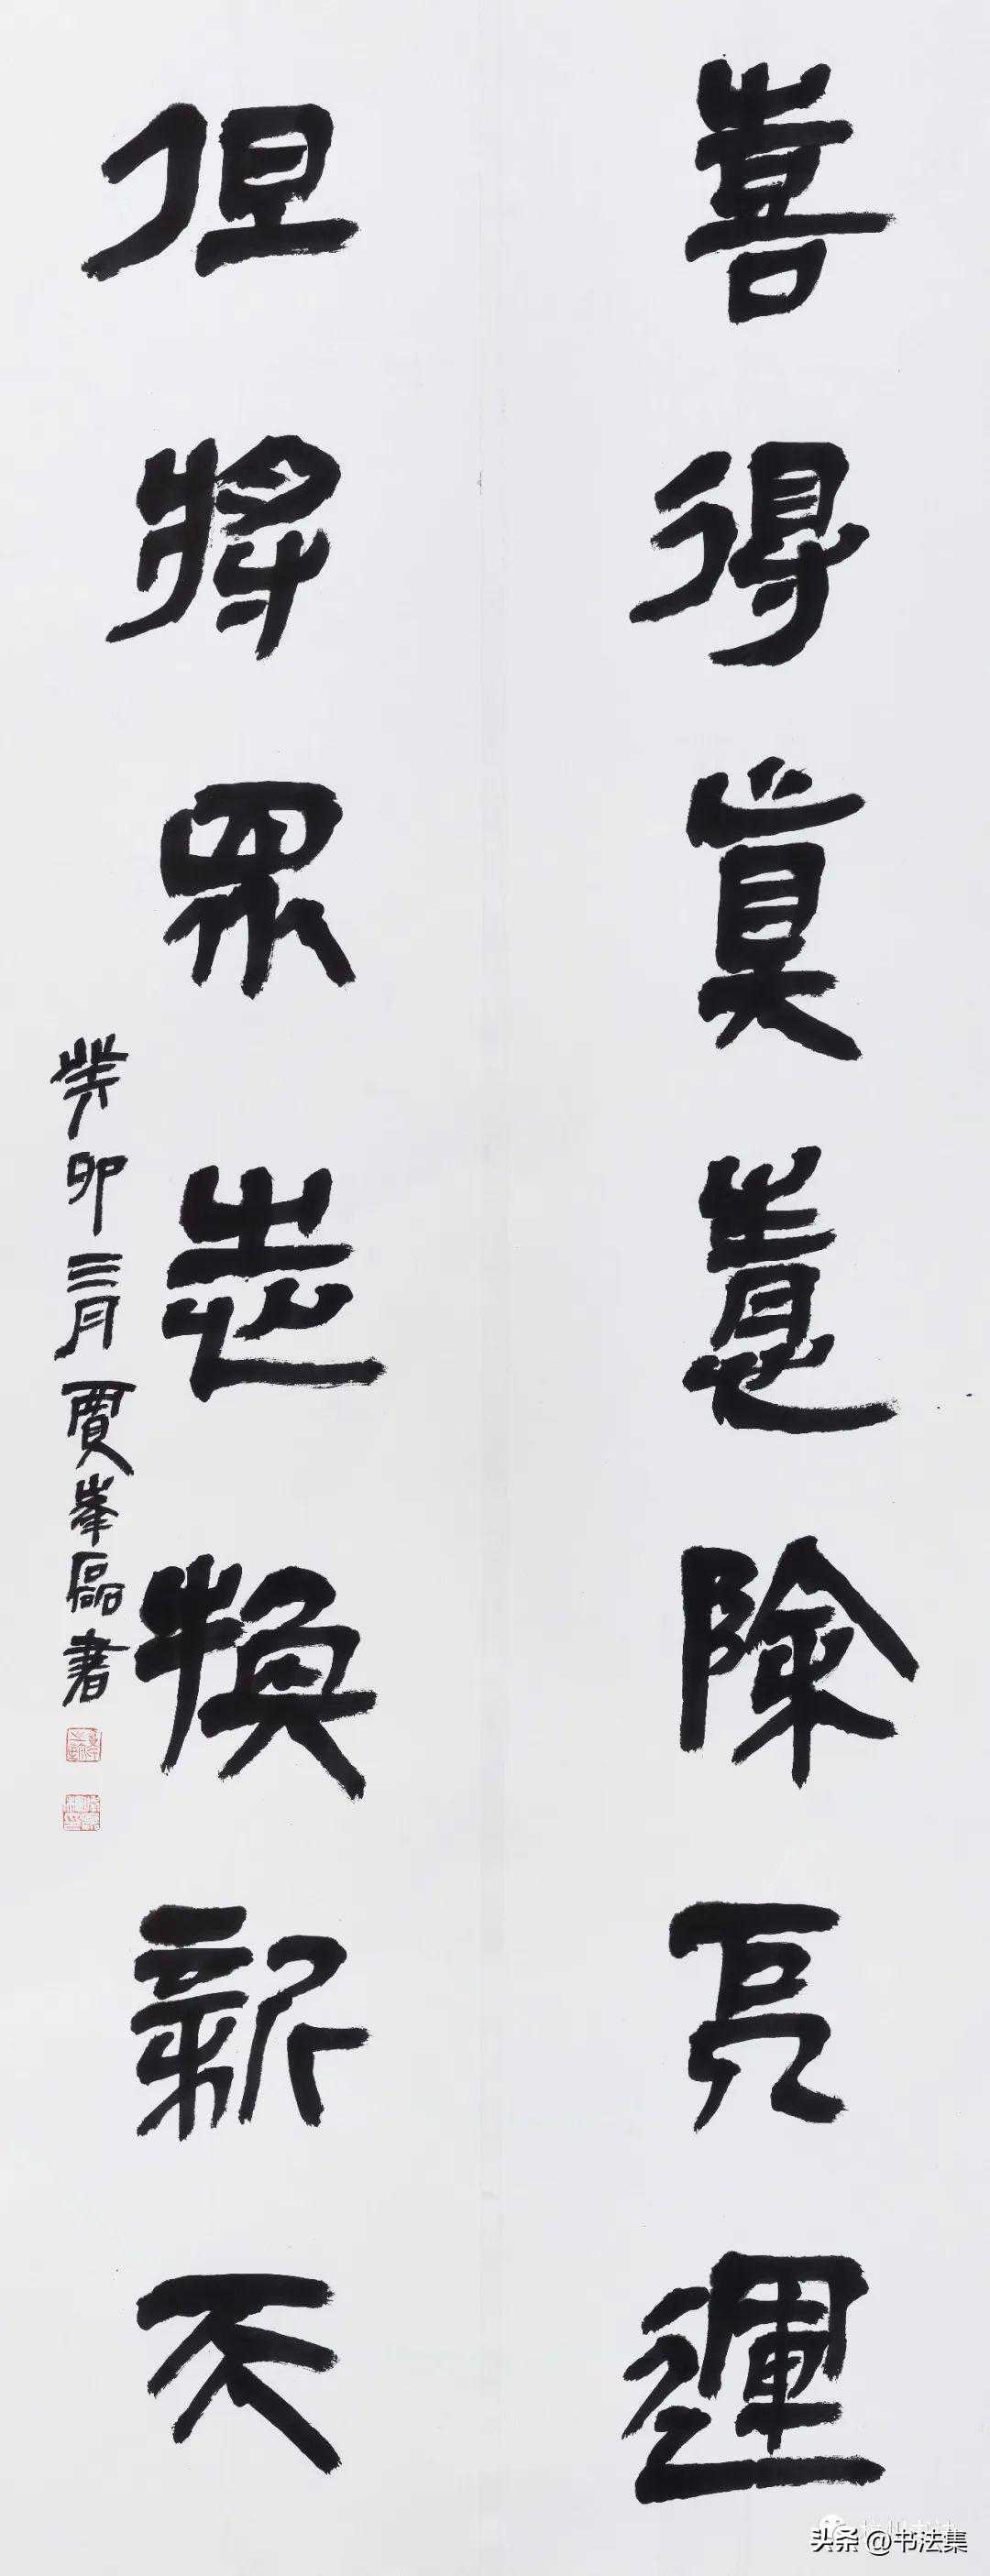 喜得真意除厄運
但將眾志換新天
癸卯三月賈峯磊書
头条 @书法集